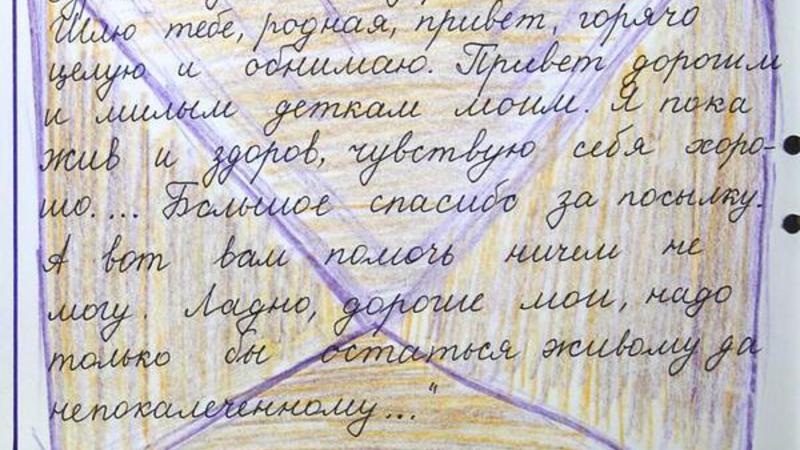 Шлю тебе, родная, привет, горячо
целую и обнимаю. Привет дорогим
и милым деткам моим. Я пока
жив и здоров, чувствую себя хоро-
шо.... Большое спасибо за посылку.
А вот вам помочь ничем не
могу. Ладно, дорогие мои, надо
только бы остаться живому да
непокалеченному..."